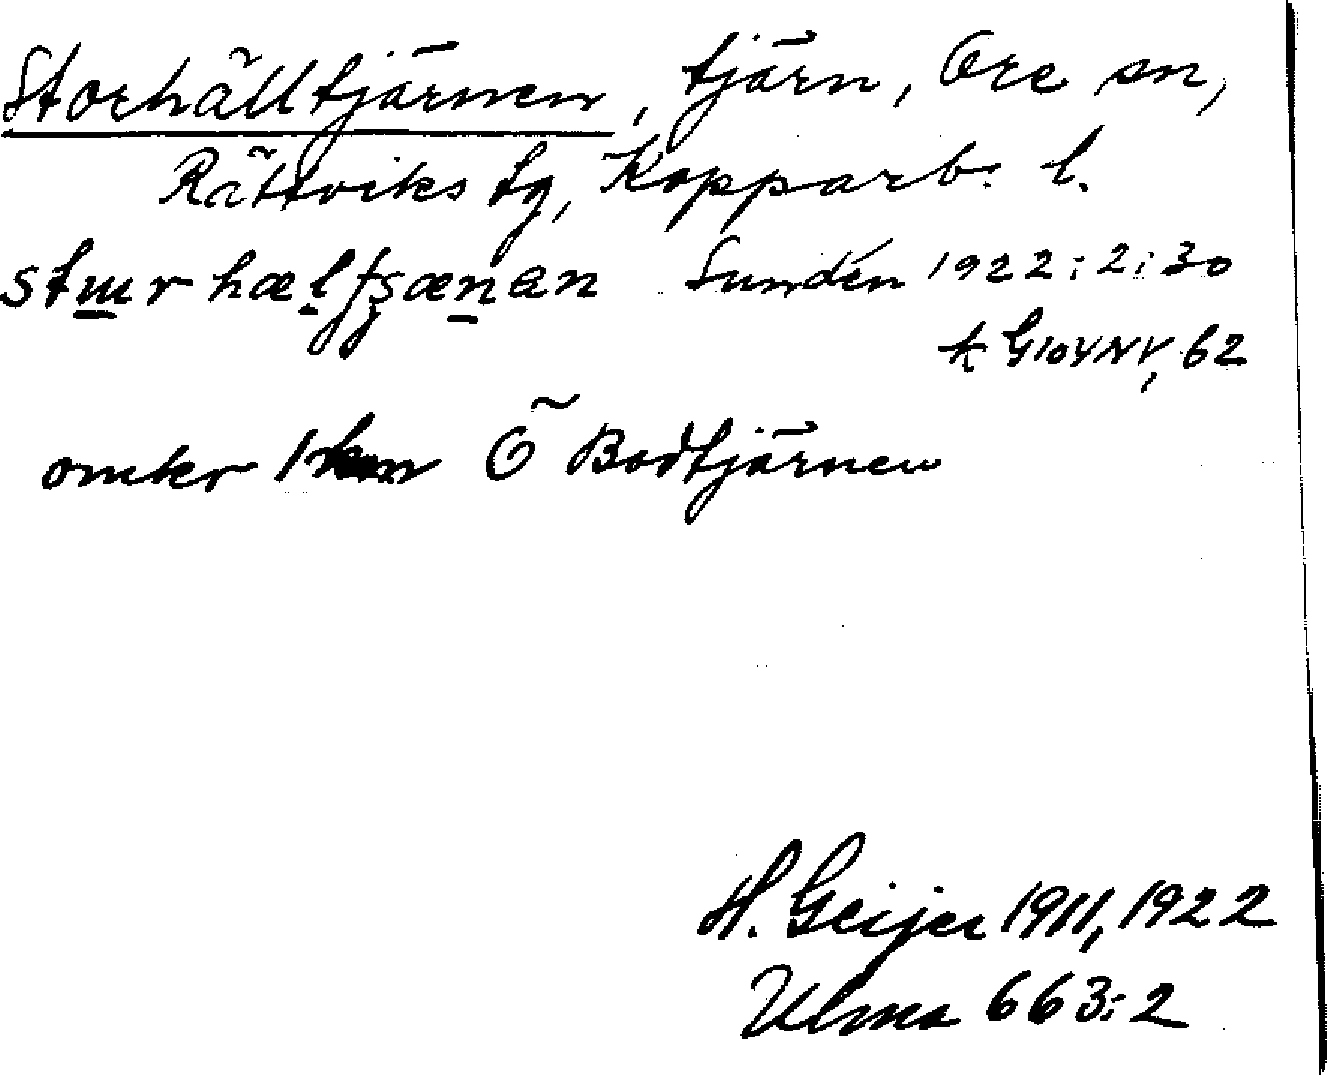 Storhälltjärnen, tjärn, Ore sn,
Rättviks tg, Kopparb. l.
Sundén 1922:2:30
62
omkr 1 km Ö Bodtjärnen
H. Geijer 1911, 1922
Ulma 663:2